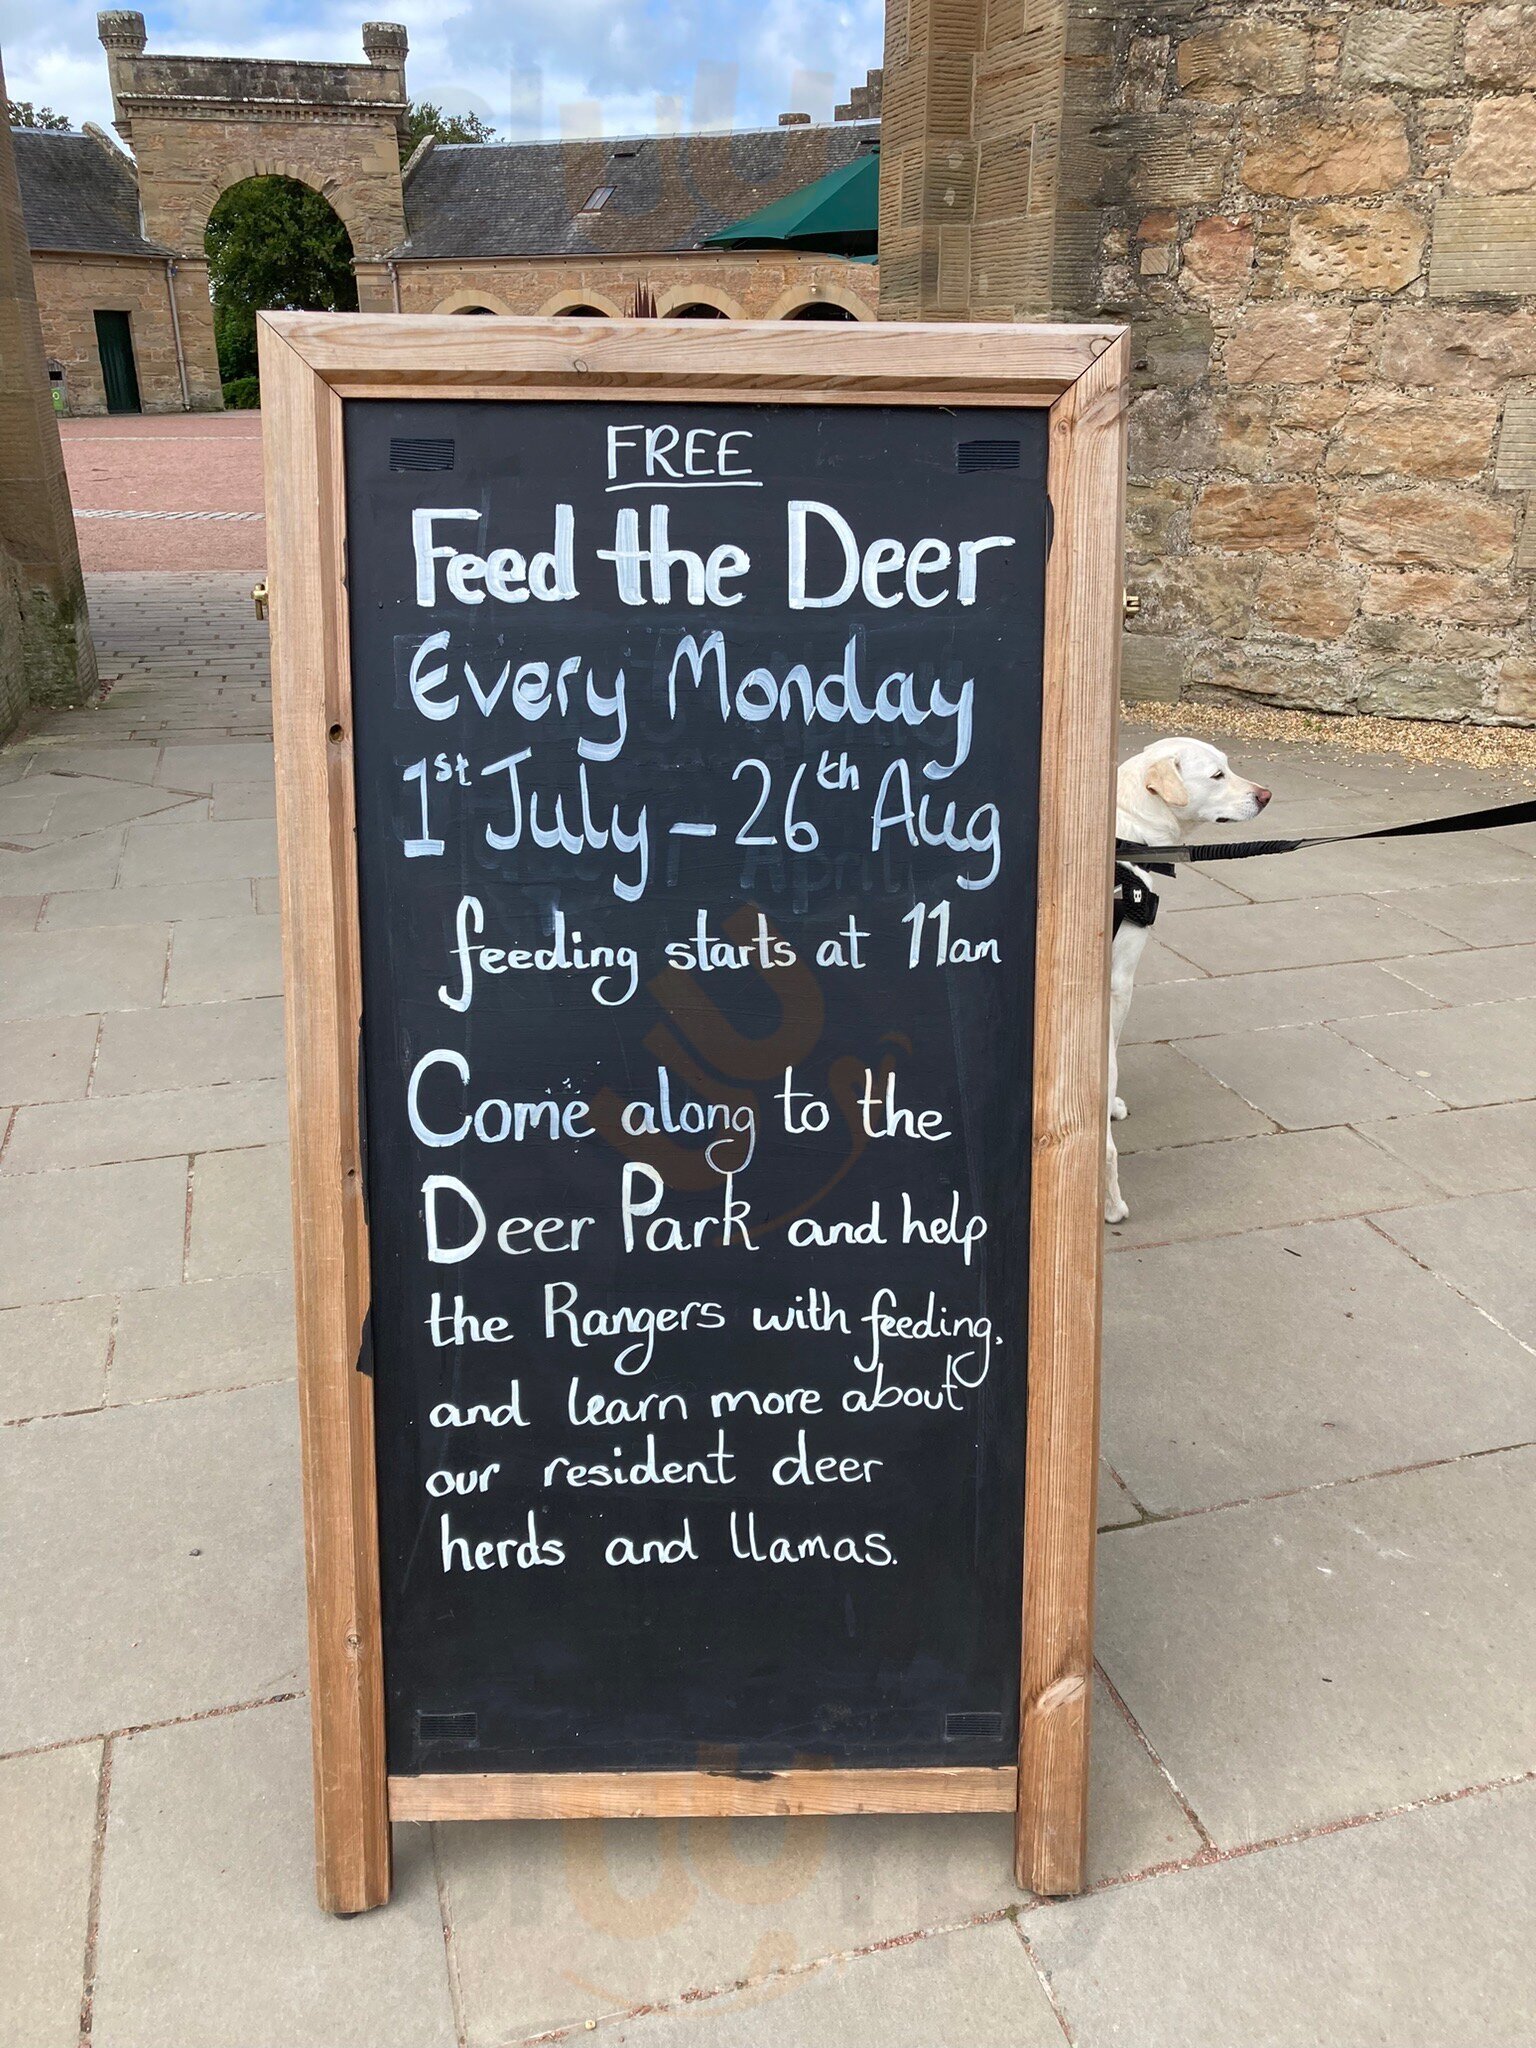 FREE
Feed the Deer
Every Monday
1st July - 26th Aug
feeding starts at 11am
Come along to the
Deer Park and help
the Rangers with feeding,
and learn more about
our resident deer
herds and llamas.